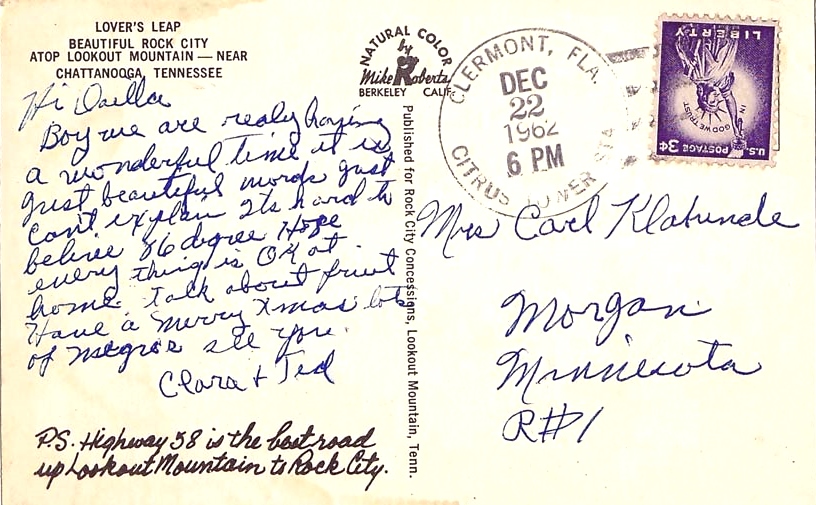 LOVER'S LEAP
BEAUTIFUL ROCK CITY
ATOP LOOKOUT MOUNTAIN — NEAR
CHATTANOOGA, TENNESSEE
Hi Daella
Boy we are realy having
a wonderful time it is
just beautiful words just
can't explain Its hard to
belive 86 degree Hope
every thing is OK at
home. talk about fruit
Have a Merry Xmas lots
of negroes see you.
Clara + Ted
P.S. Highway 58 is the best road
up Lookout Mountain to Rock City.
NATURAL COLOR
by
Mike Roberts
BERKELEY CALIF.
Published for Rock City Concessions, Lookout Mountain, Tenn.
CLERMONT, FLA.
DEC
22
1962
6 PM
CITRUS TOWER STA
LIBERTY
IN GOD WE TRUST
U.S. POSTAGE 3¢
Mrs Carl
Morgan
Minnesota
R#1